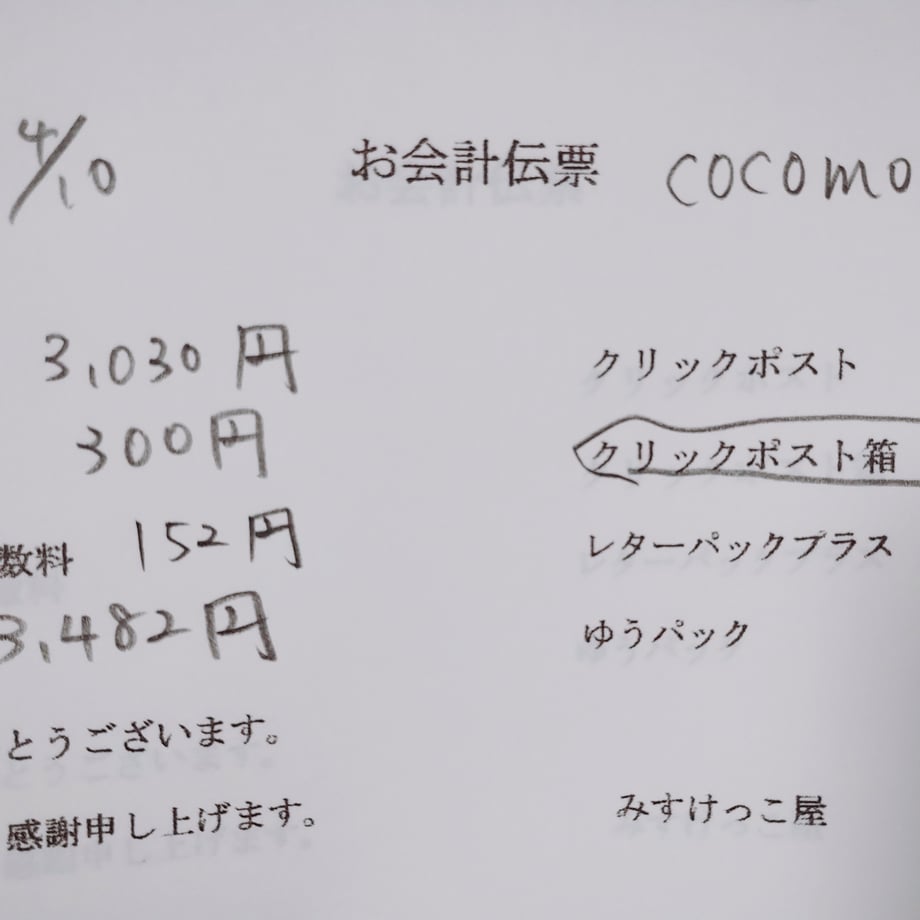 4/10 お会計伝票 cocomo
3,030円 クリックポスト
300円 クリックポスト箱
数料 152円 レターパックプラス
3,482円 ゆうパック
とうございます。
感謝申し上げます。 みすけっこ屋